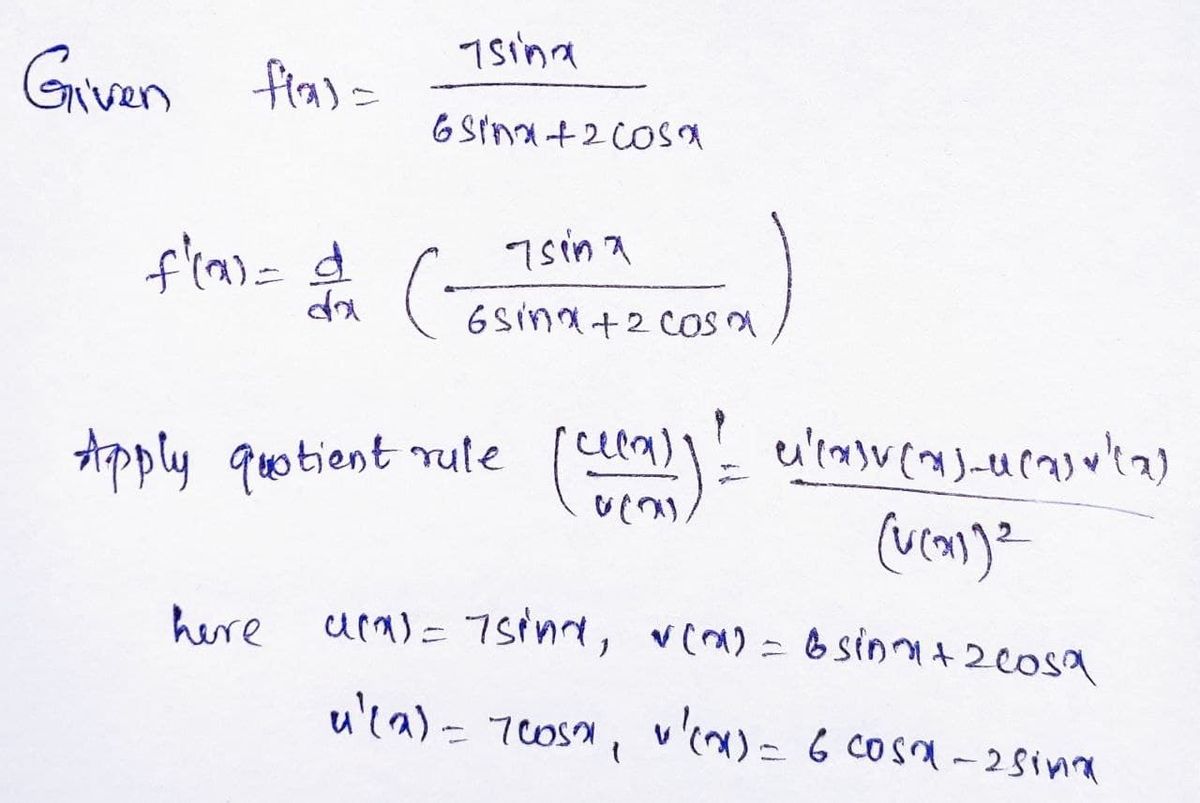 Given f(x) = 7sinx / 6sinx+2cosx
f'(x) = d/dx ( 7sinx / 6sinx+2cosx )
Apply quotient rule (u(x)/v(x))' = u'(x)v(x)-u(x)v'(x) / (v(x))²
here u(x) = 7sinx, v(x) = 6sinx+2cosx
u'(x) = 7cosx, v'(x) = 6cosx-2sinx